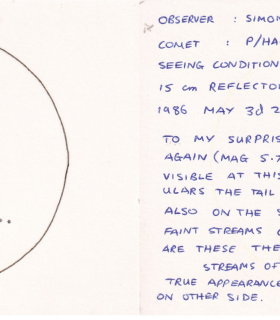 OBSERVER : SIMON
COMET : P/HA
SEEING CONDITION
15 cm REFLECTO
1986 MAY 3d 2
TO MY SURPRIS
AGAIN (MAG 5.7
VISIBLE AT THIS
ULARS THE TAIL
ALSO ON THE S
FAINT STREAMS
ARE THESE THE
STREAMS OF
TRUE APPEARANCE
ON OTHER SIDE.